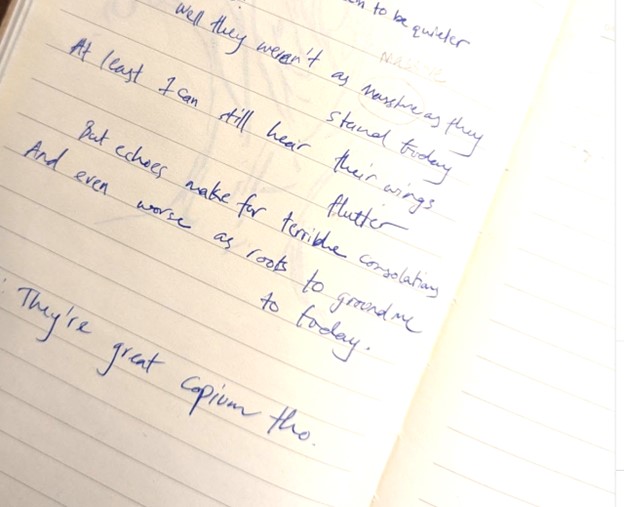 to be quieter
Well they weren't as massive as they
stand today
At least I can still hear their wings
flutter
But echoes make for terrible consolations
And even worse as roots to ground me
to today.
They're great copium tho.